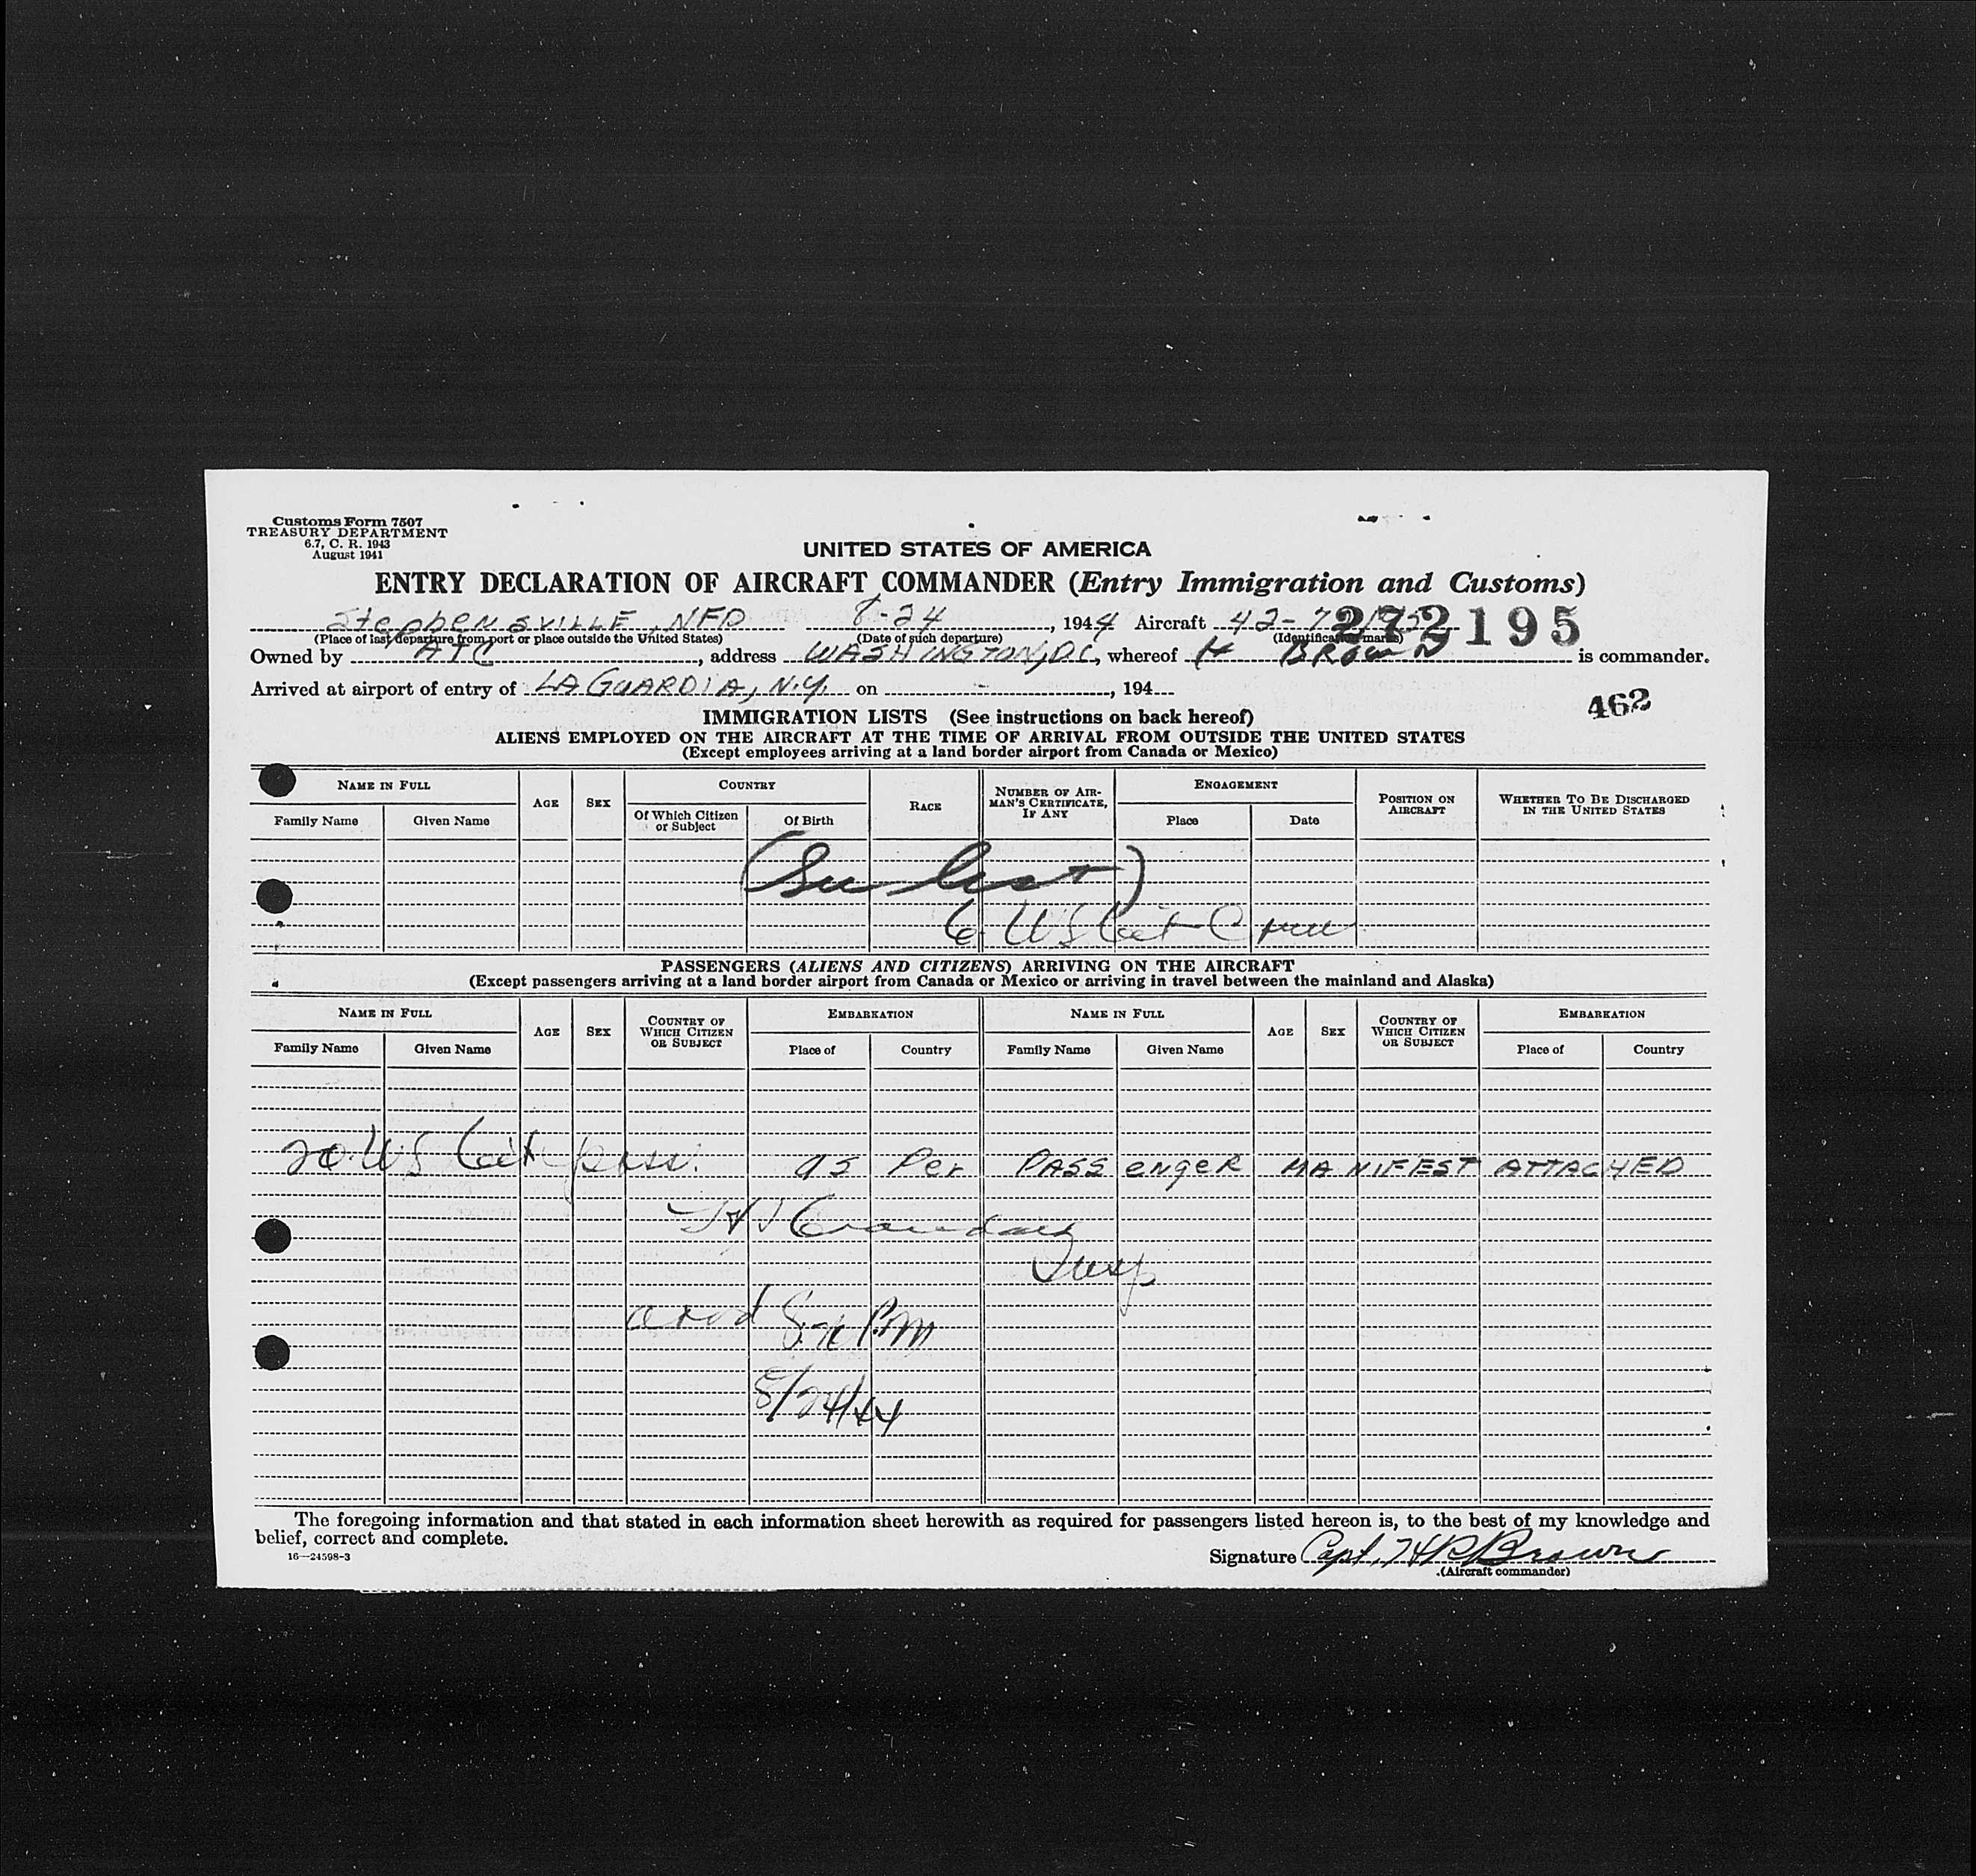 Customs Form 7507
TREASURY DEPARTMENT
6.7, C. R. 1943
August 1941
UNITED STATES OF AMERICA
ENTRY DECLARATION OF AIRCRAFT COMMANDER (Entry Immigration and Customs)
StephenSVILLE, NFD 8-24, 1944 Aircraft 42-7
272195
(Place of last departure from port or place outside the United States) (Date of such departure) (Identification marks)
Owned by ATC, address WASHINGTON, DC, whereof H BROWN is commander.
Arrived at airport of entry of LA GUARDIA, N.Y. on -, 194
462
IMMIGRATION LISTS (See instructions on back hereof)
ALIENS EMPLOYED ON THE AIRCRAFT AT THE TIME OF ARRIVAL FROM OUTSIDE THE UNITED STATES
(Except employees arriving at a land border airport from Canada or Mexico)
NAME IN FULL AGE SEX COUNTRY RACE NUMBER OF AIRMAN'S CERTIFICATE, IF ANY ENGAGEMENT POSITION ON AIRCRAFT WHETHER TO BE DISCHARGED IN THE UNITED STATES
Family Name Given Name Of Which Citizen or Subject Of Birth Place Date
(See list)
6 US Cit Crew
PASSENGERS (ALIENS AND CITIZENS) ARRIVING ON THE AIRCRAFT
(Except passengers arriving at a land border airport from Canada or Mexico or arriving in travel between the mainland and Alaska)
NAME IN FULL AGE SEX COUNTRY OF WHICH CITIZEN OR SUBJECT EMBARKATION NAME IN FULL AGE SEX COUNTRY OF WHICH CITIZEN OR SUBJECT EMBARKATION
Family Name Given Name Place of Country Family Name Given Name Place of Country
20 US Cit pass. as Per PASSengeR MANIFEST ATTACHED
Insp
arvd PM
8/24/44
The foregoing information and that stated in each information sheet herewith as required for passengers listed hereon is, to the best of my knowledge and
belief, correct and complete.
16—24598-3
Signature Capt. HR Brown
(Aircraft commander)